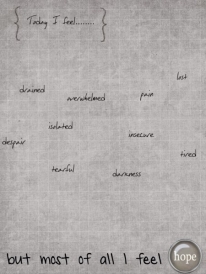 { Today I feel........ }
lost
drained
overwhelmed
pain
isolated
insecure
despair
tired
tearful
darkness
but most of all I feel hope